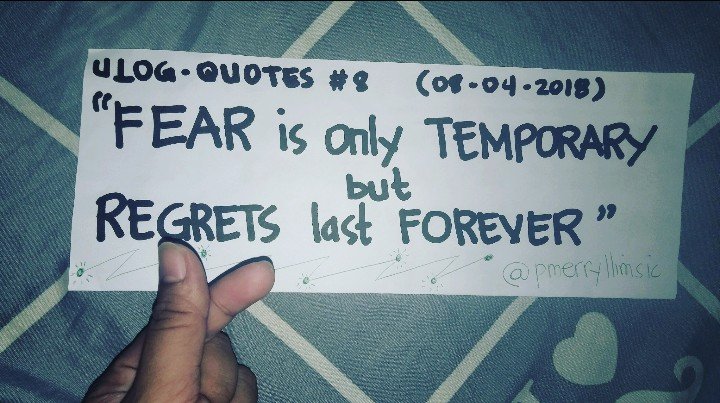 ULOG-QUOTES #8 (08-04-2018)
"FEAR is only TEMPORARY
but
REGRETS last FOREVER"